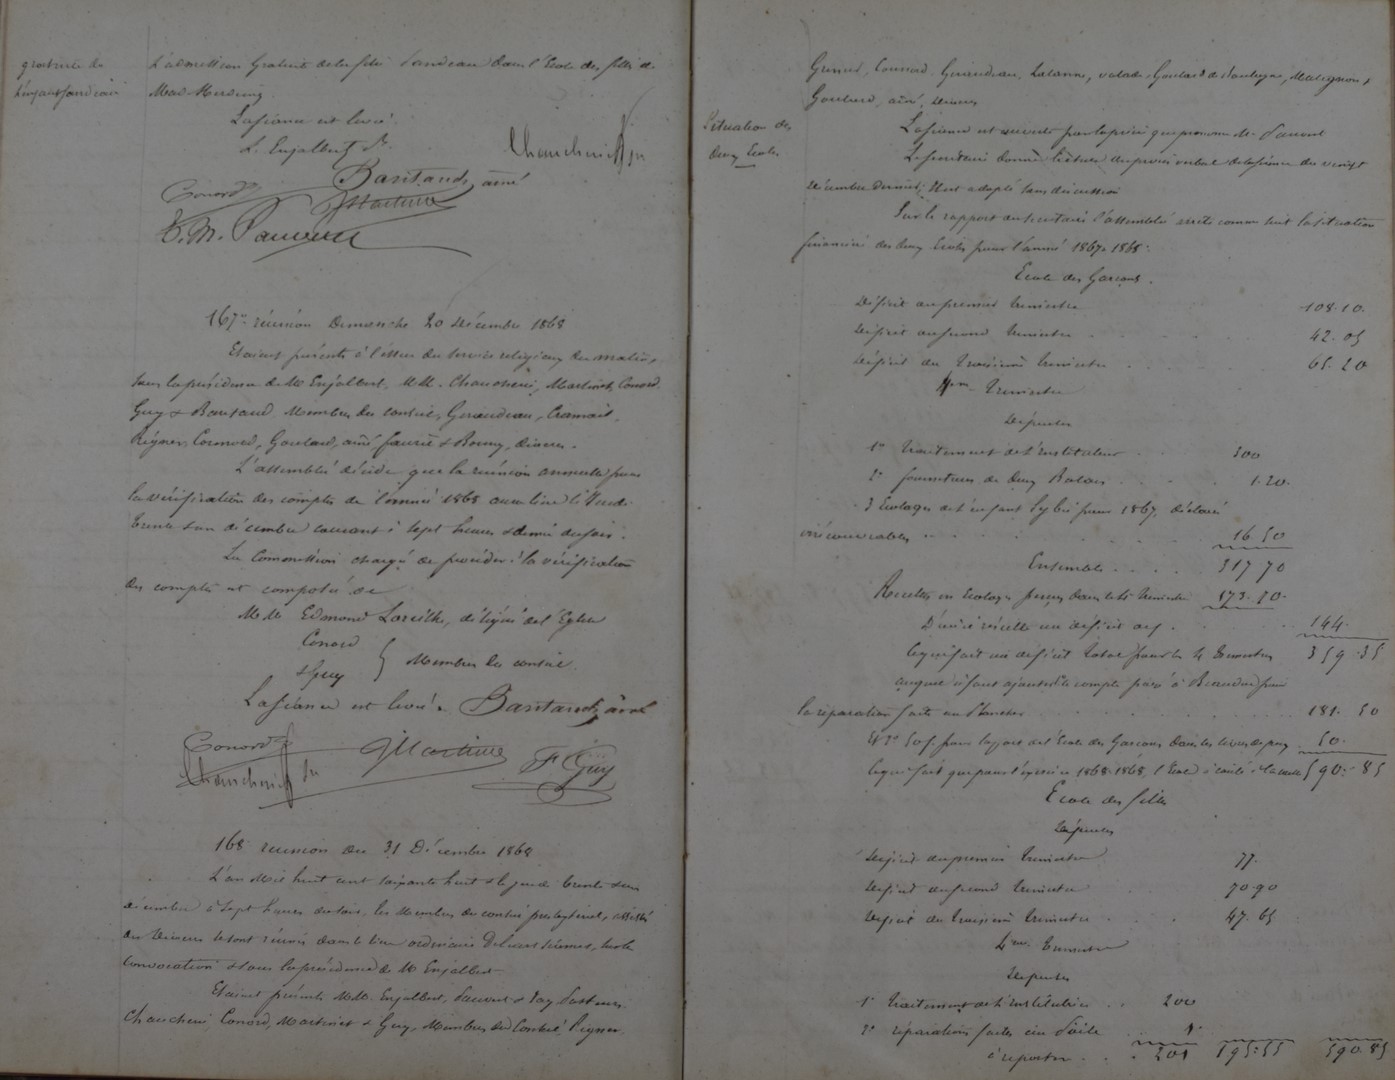 gratuité de
l'enfant Sandeau
L'admission gratuite de la fille Sandeau dans l'Ecole des filles de
Mad.
La séance est levée.
L. Enjalbert Pr.
Bantands aîné
Conord
J Martinet
167e réunion Dimanche 20 Décembre 1868
Etaient présents à l'issue du service religieux du matin,
sous la présidence de Mr Enjalbert, MM. Martinet, Conord
Guy & Membres du conseil, Giraudeau,
Goulard, aîné & diacres.
L'assemblée décide que la réunion annuelle pour
la vérification des comptes de l'année 1868 aura lieu le Jeudi
trente un décembre courant à sept heures & demie du soir.
La Commission chargée de procéder à la vérification
des comptes est composée de
MM. Edmond délégué de l'Eglise
Conord
& Guy } Membres du conseil.
La séance est levée. Bantands aîné
Conord J Martinet F Guy
168 réunion du 31 Décembre 1868
L'an Mil huit cent soixante huit & le jeudi trente & un
décembre à sept heures du soir, les Membres du conseil presbytéral, assistés
des Diacres se sont réunis dans le lieu ordinaire de leurs séances, sur la
convocation & sous la présidence de Mr Enjalbert
Etaient présents MM. Enjalbert, & Pasteurs
Conord, Martinet & Guy, Membres du Conseil
Giraudeau, Goulard de
Goulard, aîné, diacres
Situation des
deux Ecoles
La séance est ouverte par la prière que prononce Mr
Le secrétaire donne lecture du procès verbal de la séance du vingt
décembre dernier; Il est adopté sans discussion
Sur le rapport du secrétaire l'assemblée arrête comme suit la situation
financière des deux Ecoles pour l'année 1867 à 1868:
Ecole des Garçons.
Déficit au premier trimestre 108.10.
Déficit au second trimestre 42.05
Déficit au troisième trimestre 65.20
4me Trimestre
Dépenses
1° Traitement de l'instituteur 300
2° fournitures de deux Balais 1.20.
3 Ecolages de l'enfant pour 1867, déclarés
irrécouvrables 16.50
Ensemble 317 70
Recettes en Ecolages perçus dans le 4e trimestre 173.70.
D'où il résulte un déficit de f. 144.
Ce qui fait un déficit total pour les 4 trimestres 359.35
auquel il faut ajouter le compte payé à pour
la réparation faite au plancher 181.50
Et 1° 50 f. pour la part de l'Ecole des Garçons dans les livres de prix 50.
Ce qui fait que pour l'exercice 1868.1868, l'Ecole a coûté 590.85
Ecole des filles
Dépenses
Déficit au premier trimestre 77.
Déficit au second trimestre 70.90
Déficit au troisième trimestre 47.65
4me Trimestre
Dépenses
1° Traitement de l'institutrice 200
2° réparations faites au Poële 1.
à reporter 201 195.55 590.85